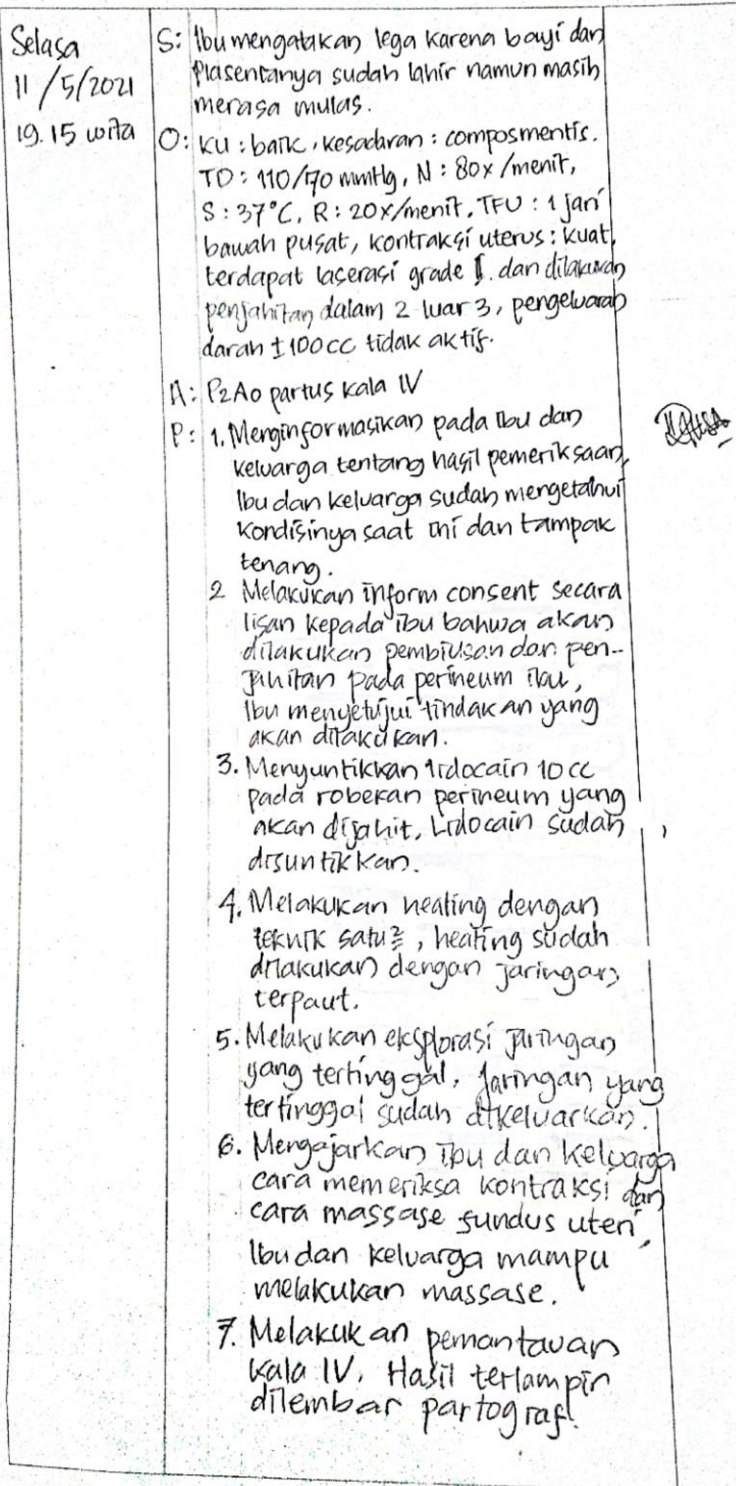 Selasa
11/5/2021
19.15 wita
S: Ibu mengatakan lega karena bayi dan
plasentanya sudah lahir namun masih
merasa mulas.
O: KU : baik, kesadaran : composmentis.
TD : 110/70 mmHg, N : 80x/menit,
S : 37°C, R : 20x/menit, TFU : 1 jari
bawah pusat, kontraksi uterus : kuat,
terdapat laserasi grade I. dan dilakukan
penjahitan dalam 2 luar 3, pengeluaran
darah ±100cc tidak aktif.
A: P2A0 partus kala IV
P: 1. Menginformasikan pada ibu dan
keluarga tentang hasil pemeriksaan,
Ibu dan keluarga sudah mengetahui
kondisinya saat ini dan tampak
tenang.
2 Melakukan inform consent secara
lisan kepada ibu bahwa akan
dilakukan pembiusan dan pen-
jahitan pada perineum ibu,
Ibu menyetujui tindakan yang
akan dilakukan.
3. Menyuntikkan lidocain 10cc
pada robekan perineum yang
akan dijahit, Lidocain sudah
disuntikkan.
4. Melakukan healing dengan
teknik satu2, heating sudah
dilakukan dengan jaringan
terpaut.
5. Melakukan eksplorasi jaringan
yang tertinggal, Jaringan yang
tertinggal sudah dikeluarkan.
6. Mengajarkan ibu dan keluarga
cara memeriksa kontraksi dan
cara massase fundus uteri,
Ibu dan keluarga mampu
melakukan massase.
7. Melakukan pemantauan
kala IV. Hasil terlampir
dilembar partograf.